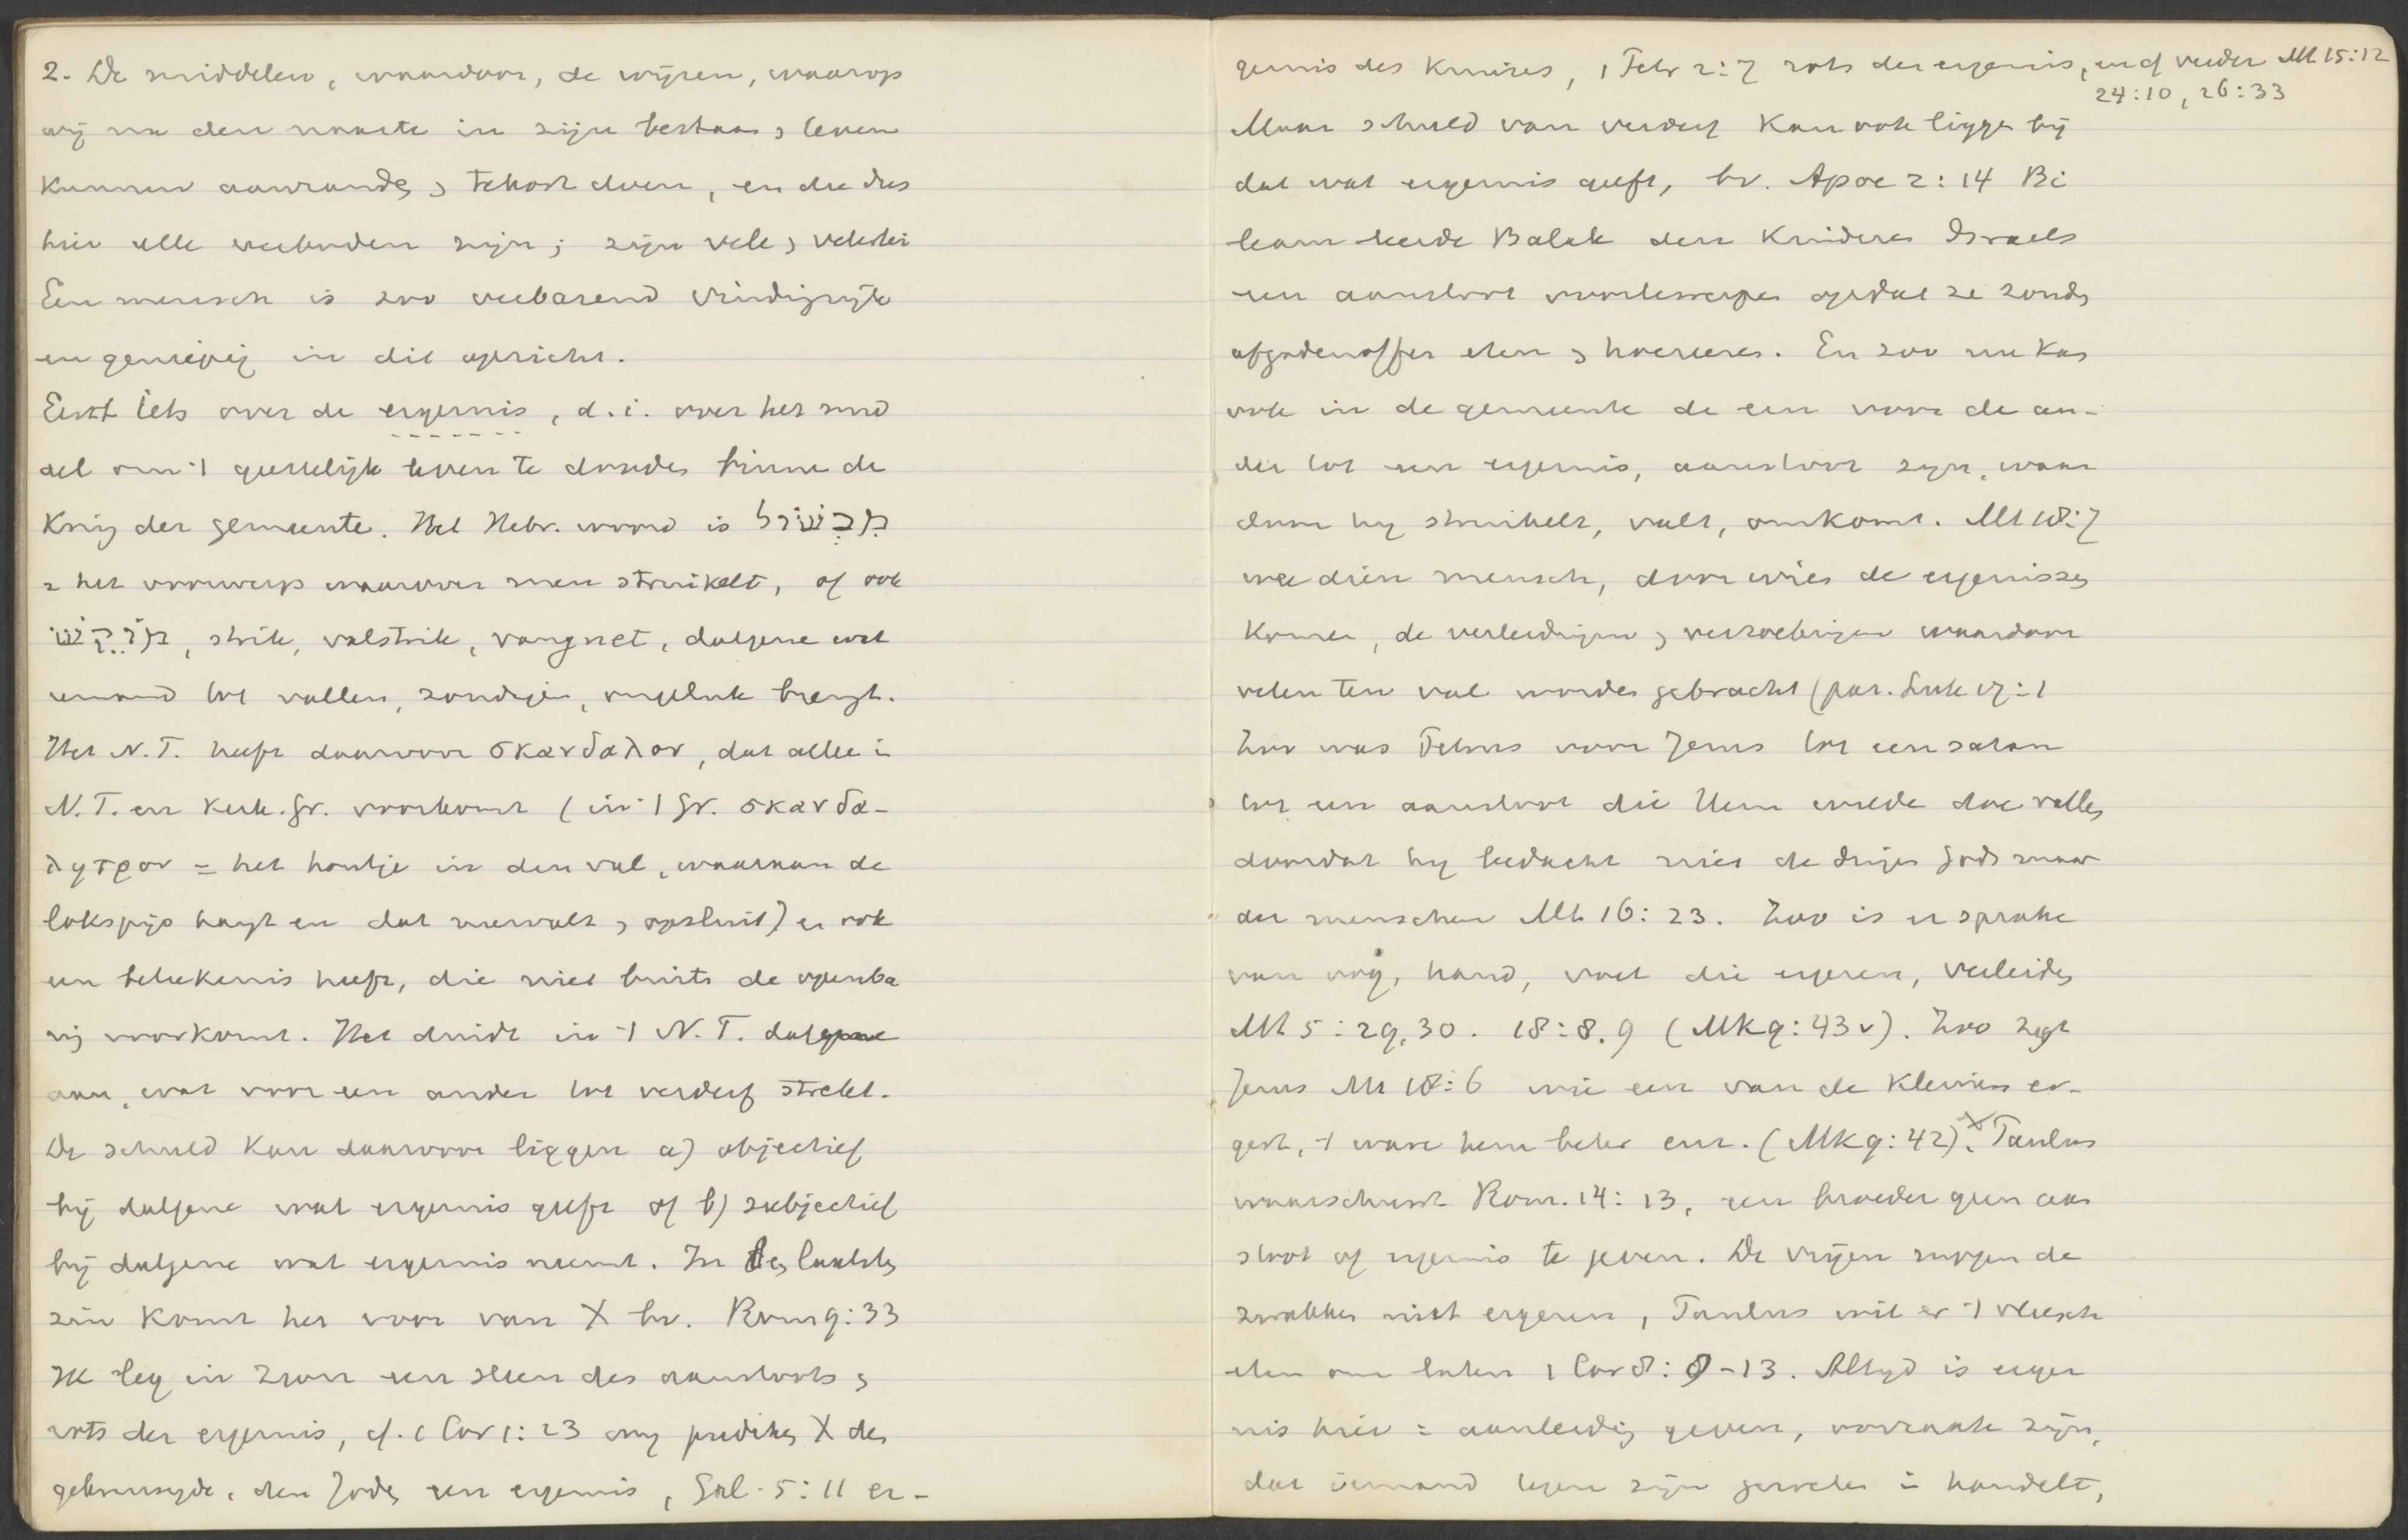 2. De middelen, waardoor, de wijzen, waarop
wij nu den naaste in zijn bestaan & leven
kunnen aanranden & tekort doen, en die dus
hier alle verboden zijn; zijn vele & velerlei
Een mensch is zoo verbazend vindingrijk
en geniepig in dit opzicht.
Eerst iets over de ergernis, d.i. over het mid
del om 't geestelijk leven te dooden binnen de
Kring der gemeente. Het Hebr. woord is מִכְשׁוֹל
= het voorwerp waarover men struikelt, of ook
מוֹקֵשׁ, strik, valstrik, vangnet, datgene wat
iemand tot vallen, zondigen, ongeluk brengt.
Het N.T. heeft daarvoor σκανδαλον, dat alleen in
N.T. en Kerk. Gr. voorkomt (in 't Gr. σκανδα-
ληθρον = het houtje in den val, waaraan de
lokspijs hangt en dat neervalt & opsluit) en ook
een betekenis heeft, die niet buiten de openba
ring voorkomt. Het duidt in 't N.T. datgene
aan, wat voor een ander tot verderf strekt.
De schuld kan daarvoor liggen a) objectief
bij datgene wat ergernis geeft of b) subjectief
bij datgene wat ergernis neemt. In den laatsten
zin komt het voor van X bv. Rom 9:33
Ik leg in Zion een steen des aanstoots &
rots der ergernis, cf. 1 Cor 1:23 wij prediken X den
gekruisigde, den Joden een ergernis, Gal. 5:11 er-
gernis des Kruises, 1 Petr 2:7 rots der ergernis, en cf verder Mt 15:12
24:10, 26:33
Maar schuld van verderf kan ook liggen bij
dat wat ergernis geeft, bv. Apoc 2:14 Bi
leam leerde Balak den Kinderen Israels
een aanstoot voortewerpen opdat ze zouden
afgodenoffer eten & hoereeren. En zoo nu kan
ook in de gemeente de een voor de an-
der tot een ergernis, aanstoot zijn, waar
door hij struikelt, valt, omkomt. Mt 18:7
wee dien mensch, door wien de ergernissen
komen, de verleidingen & verzoekingen waardoor
velen ten val worden gebracht (par. Luk 17:1
Zoo was Petrus voor Jezus tot een satan
tot een aanstoot die Hem wilde doen vallen
doordat hij bedacht niet de dingen Gods maar
der menschen Mt 16:23. Zoo is er sprake
van oog, hand, voet die ergeren, verleiden
Mt 5:29,30. 18:8.9 (Mk 9:43v). Zoo zegt
Jezus Mt 18:6 wie een van de kleinen er-
gert, 't ware hem beter enz. (Mk 9:42). X Paulus
waarschuwt Rom. 14:13, een broeder geen aan
stoot of ergernis te geven. De vrijen mogen de
zwakken niet ergeren, Paulus wil er 't vleesch
eten om laten 1 Cor 8:9-13. Altijd is erger
nis hier = aanleiding geven, oorzaak zijn,
dat iemand tegen zijn geweten in handelt,